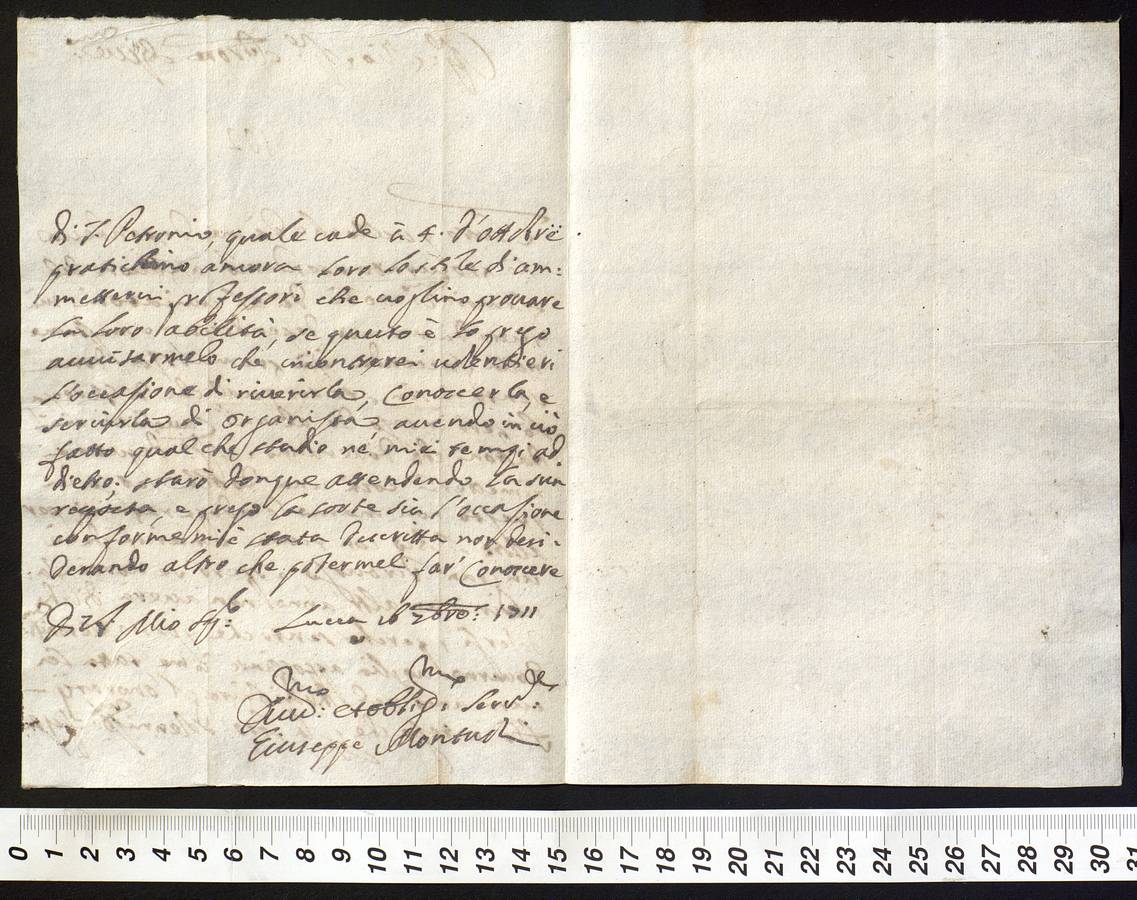 di S. Petronio, quale cade à 4. d'ottobre
pratichino ancora loro lo stile di am:
metterui professori che uoglino prouare
la loro abilità, se questo è la prego
auuisarmelo che incontrerei uolentieri
l'occasione di riuerirla, conoscerla, e
seruirla di organista auendo in ciò
fatto qualche studio ne' miei tempi ad
dietro; starò donque attendendo la sua
risposta, e prego la sorte sia l'occasione
conforme mi è stata descritta non desi:
derando altro che potermeli far' conoscere
Di V.S. Lucca 16 7bre: 1711
Diu:mo et oblig:mo Seru:re
Giuseppe
0 1 2 3 4 5 6 7 8 9 10 11 12 13 14 15 16 17 18 19 20 21 22 23 24 25 26 27 28 29 30 31